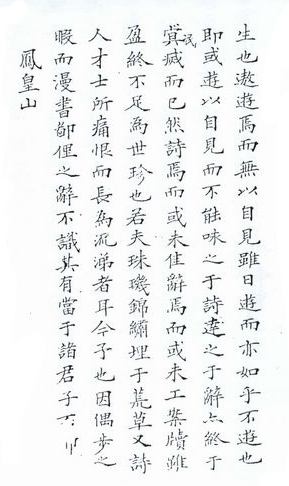 生也遨遊焉而無以自見雖日遊而亦如乎不遊也
即或遊以自見而不能咏之于詩達之于辭亦終于
冥臧而已然詩焉而或未佳辭焉而或未工案牘雖
盈終不足為世珍也若夫珠璣錦繡埋于荒草又詩
人才士所痛恨而長為流涕者耳今予也因偶步之
暇而漫書鄙俚之辭不識其有當于諸君子否
鳳皇山